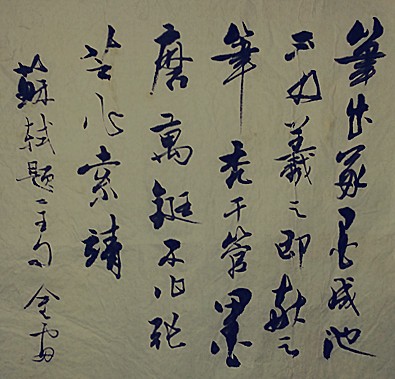 筆成冢墨成池
不及羲之即献之
筆禿千管墨
磨萬鋌不作張
芝作索靖
蘇軾题二王句